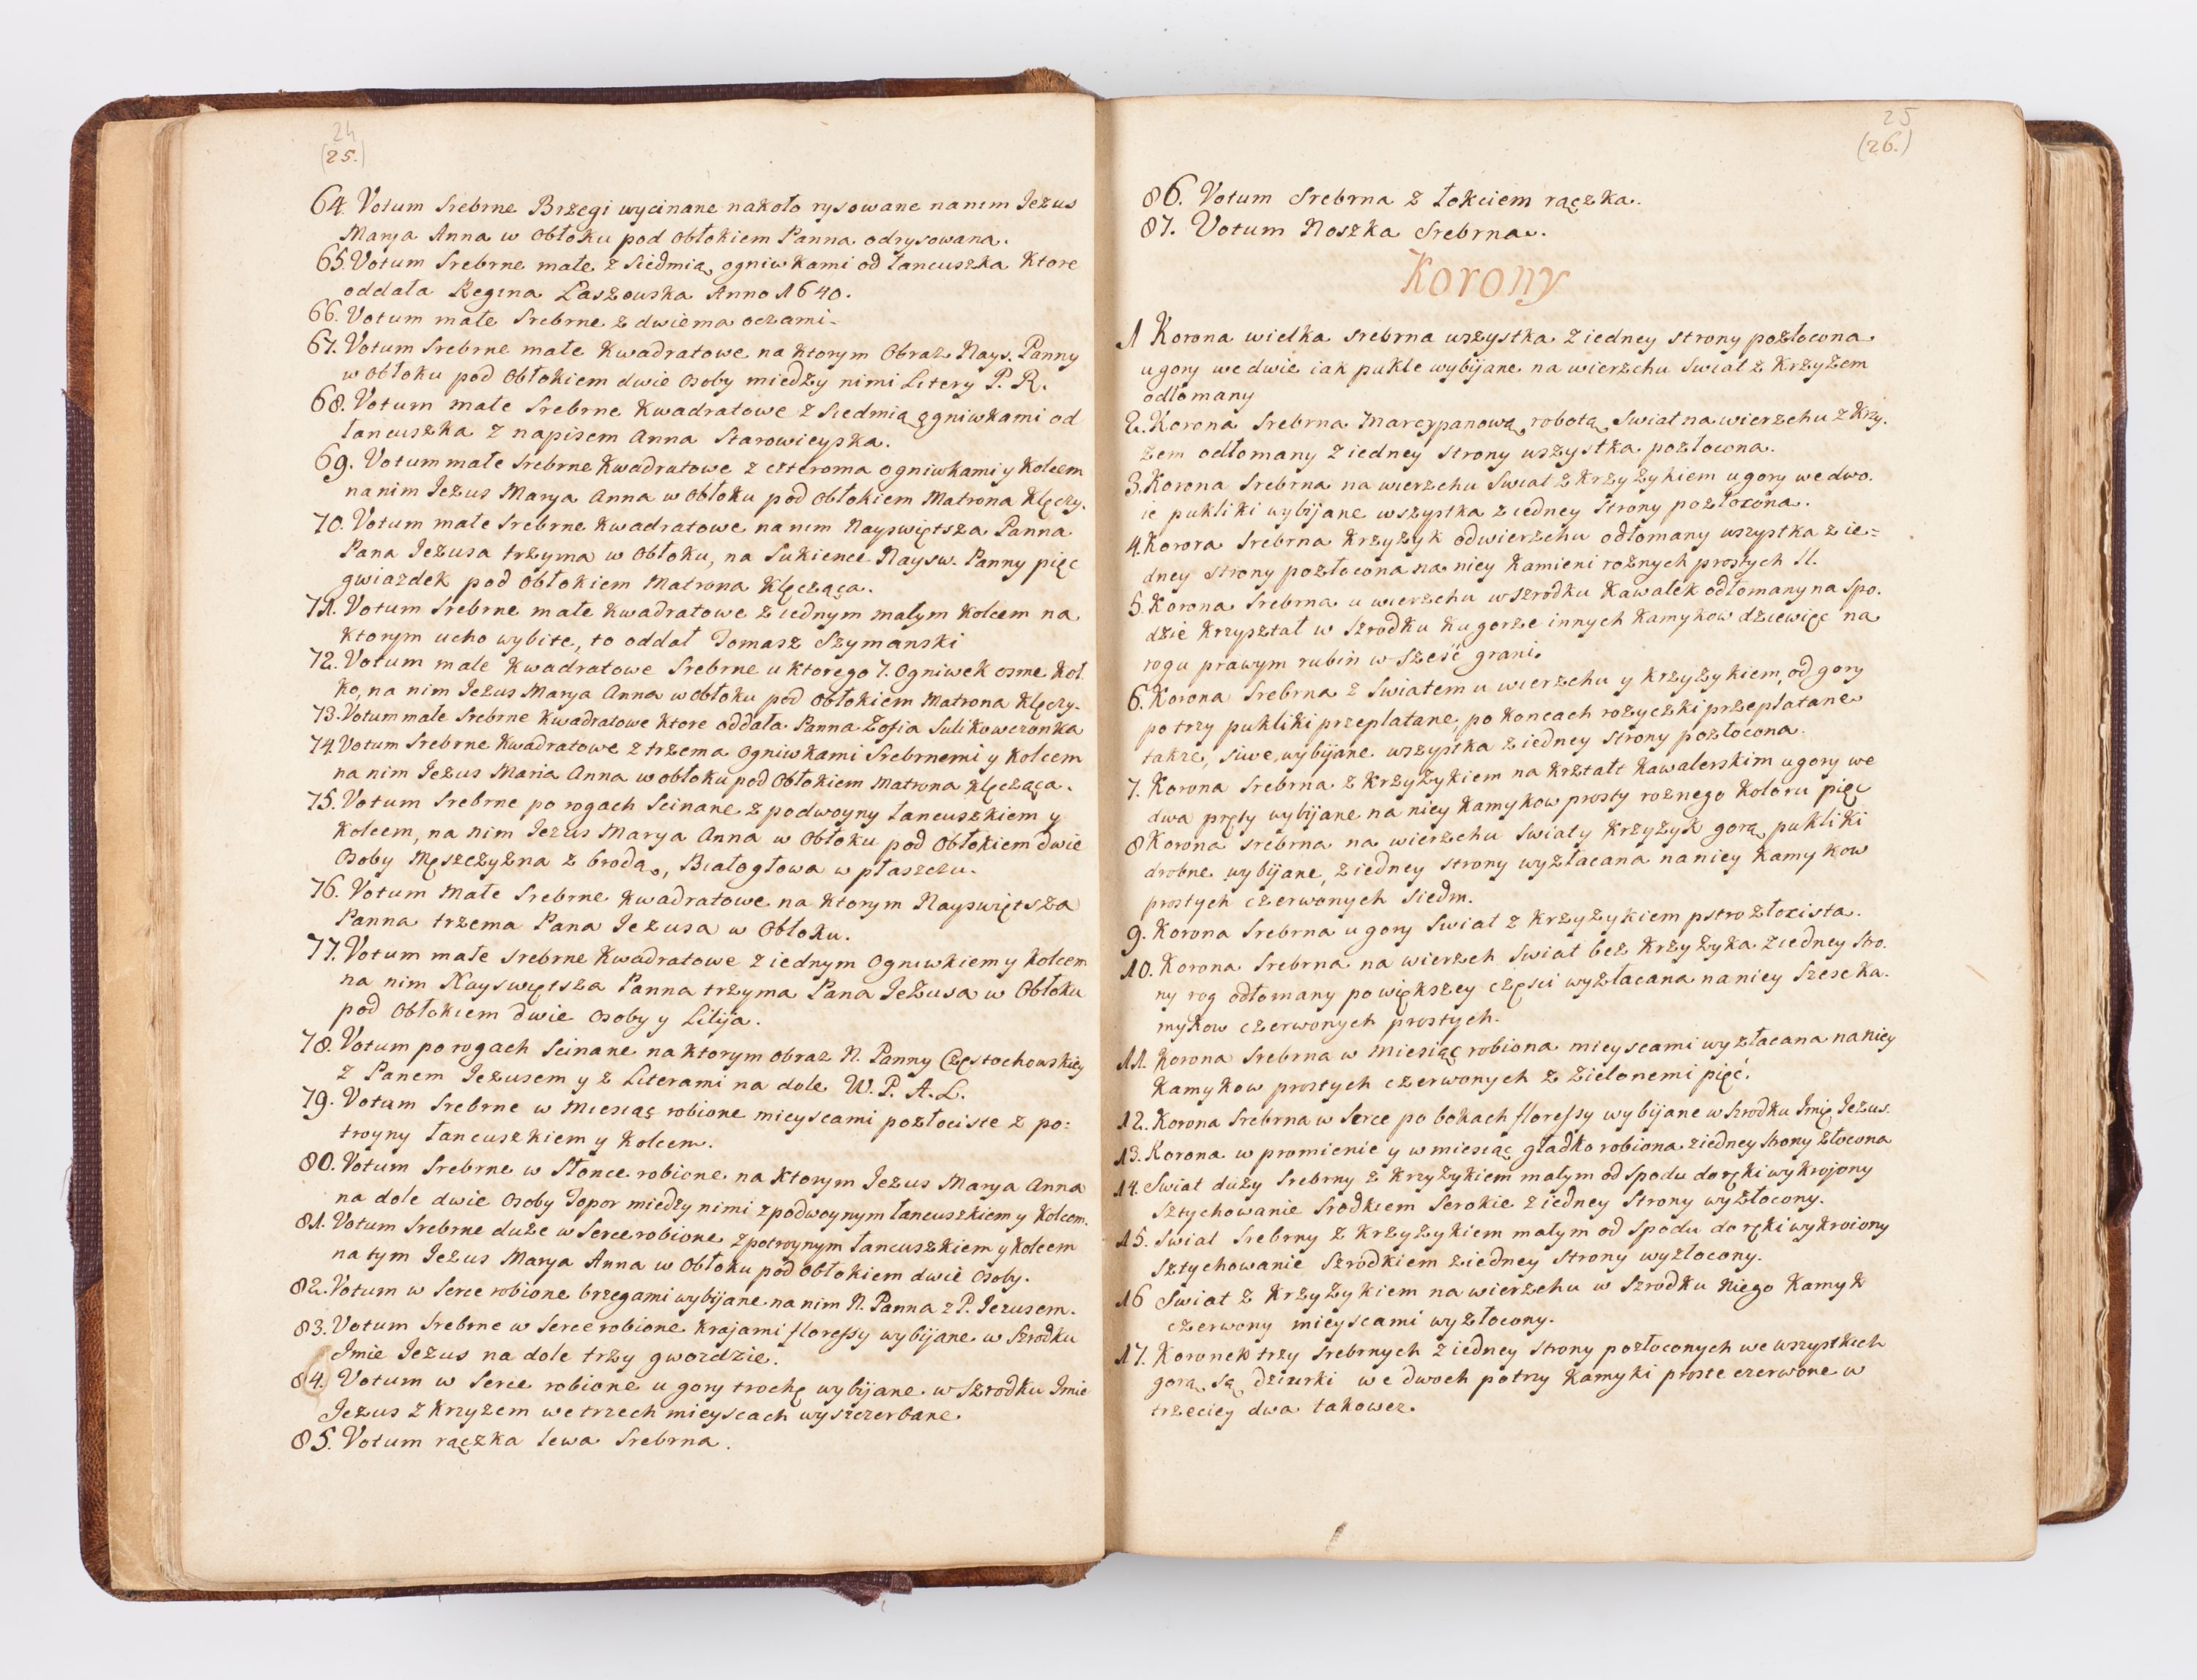 24
(25.)
64. Votum Srebrne Brzegi wycinane nakoło rysowane nanim Jezus
Marya Anna w Obłoku pod Obłokiem Panna odrysowana.
65. Votum Srebrne małe z Siedmią ogniwkami od łancuszka Ktore
oddała Regina Laszowska Anno 1640.
66. Votum małe Srebrne z dwiema oczami.
67. Votum Srebrne małe Kwadratowe na Ktorym Obraz Nays. Panny
w Obłoku pod Obłokiem dwie Osoby miedzy nimi Litery P. R.
68. Votum małe Srebrne Kwadratowe z Siedmią ogniwkami od
łancuszka z napisem Anna Starowieyska.
69. Votum małe Srebrne Kwadratowe z czteroma ogniwkami y Kolcem
na nim Jezus Marya Anna w Obłoku pod Obłokiem Matrona Klęczy.
70. Votum małe Srebrne Kwadratowe na nim Nayswiętsza Panna
Pana Jezusa trzyma w Obłoku, na Sukience Naysw. Panny pięc
gwiazdek pod Obłokiem Matrona Klęcząca.
71. Votum Srebrne małe Kwadratowe z iednym małym Kolcem na
Ktorym ucho wybite, to oddał Tomasz Szymanski
72. Votum małe Kwadratowe Srebrne u Ktorego 7. Ogniwek osme Koł
ko, na nim Jezus Marya Anna w Obłoku pod Obłokiem Matrona Klęczy.
73. Votum małe Srebrne Kwadratowe Ktore oddała Panna Zofia Sulikowczonka
74. Votum Srebrne Kwadratowe z trzema Ogniwkami Srebrnemi y Kolcem
na nim Jezus Maria Anna w obłoku pod Obłokiem Matrona Klęcząca.
75. Votum Srebrne po rogach Scinane z podwoyny łancuszkiem y
Kolcem, na nim Jezus Marya Anna w Obłoku pod Obłokiem dwie
Osoby Męszczyzna z brodą, Białogłowa w płaszczu.
76. Votum Małe Srebrne Kwadratowe na Ktorym Nayswiętsza
Panna trzema Pana Jezusa w Obłoku.
77. Votum małe Srebrne Kwadratowe z iednym Ogniwkiem y Kolcem
na nim Nayswiętsza Panna trzyma Pana Jezusa w Obłoku
pod Obłokiem dwie Osoby y Lilija.
78. Votum po rogach Scinane na Ktorym obraz N. Panny Częstochowskiey
z Panem Jezusem y z Literami na dole W. P. A. L.
79. Votum Srebrne w Miesiąc robione mieyscami pozłociste z po:
troyny łancuszkiem y Kolcem.
80. Votum Srebrne w Słonce robione na Ktorym Jezus Marya Anna
na dole dwie Osoby Topor miedzy nimi z podwoynym łancuszkiem y Kolcem.
81. Votum Srebrne duże w Serce robione z potroynym łancuszkiem y Kolcem
na tym Jezus Marya Anna w Obłoku pod Obłokiem dwie Osoby.
82. Votum w Serce robione brzegami wybijane na nim N. Panna z P. Jezusem.
83. Votum Srebrne w Serce robione Krajami floressy wybijane w Szrodku
Imie Jezus na dole trzy gwozdzie.
84. Votum w Serce robione u gory trochę wybijane w Szrodku Imie
Jezus z Krzyzem we trzech mieyscach wyszczerbane.
85. Votum rączka lewa Srebrna.
25
(26.)
86. Votum Srebrna z Łokciem rączka.
87. Votum Noszka Srebrna.
Korony
1 Korona wielka srebrna wszystka z iedney strony pozłocona
u gory we dwie iak pukle wybijane na wierzchu Swiat z Krzyżem
odłomany
2. Korona Srebrna Marcypanową robotą Swiat na wierzchu z Krzy.
żem odłomany z iedney strony wszystka pozłocona.
3. Korona Srebrna na wierzchu Swiat z Krzyżykiem u gory we dwo.
ie pukliki wybijane wszystka z iedney Strony pozłocona.
4. Korora Srebrna Krzyżyk od wierzchu odłomany wszystka z ie=
dney strony pozłocona na niey Kamieni rożnych prostych 11.
5. Korona Srebrna u wierzchu w szrodku Kawałek odłomany na Spo.
dzie Krzyształ w Szrodku Ku gorze innych Kamykow dziewięc na
rogu prawym rubin w Sześć grani.
6. Korona Srebrna z Swiatem u wierzchu y Krzyżykiem, od gory
po trzy pukliki przeplatane, po Koncach rożyczki przeplatane
takze, siwe, wybijane wszystka z iedney Strony pozłocona.
7. Korona Srebrna z Krzyżykiem na Krztałt Kawalerskim u gory we
dwa pręty wybijane na niey Kamykow prosty rożnego Koloru pięc
8 Korona srebrna na wierzchu Swiaty Krzyżyk gorą pukliki
drobne wybijane, z iedney strony wyzłacana na niey Kamykow
prostych czerwonych Siedm.
9. Korona Srebrna u gory Swiat z Krzyżykiem pstrozłocista.
10. Korona Srebrna na wierzch Swiat bez Krzyżyka z iedney stro.
ny rog odłomany po większey części wyzłacana na niey Szesc Ka.
mykow czerwonych prostych.
11. Korona Srebrna w Miesiąc robiona mieyscami wyzłacana na niey
Kamykow prostych czerwonych z zielonemi pięć.
12. Korona Srebrna w Serce po bokach floressy wybijane w Szrodku Imię Jezus.
13. Korona w promienie y w miesiąc gładko robiona z iedney strony złocona
14. Swiat duży Srebrny z Krzyżykiem małym od Spodu do ręki wykrojony
Sztychowanie Srodkiem Serokie z iedney Strony wyzłocony.
15. Swiat Srebrny z Krzyżykiem małym od Spodu do ręki wykroiony
Sztychowanie Szrodkiem z iedney strony wyzłocony.
16 Swiat z Krzyżykiem na wierzchu w Szrodku Niego Kamyk
czerwony mieyscami wyzłocony.
17. Koronek trzy srebrnych z iedney strony pozłoconych we wszystkich
gorą są dziurki we dwoch potrzy Kamyki proste czerwone w
trzeciey dwa takowez.